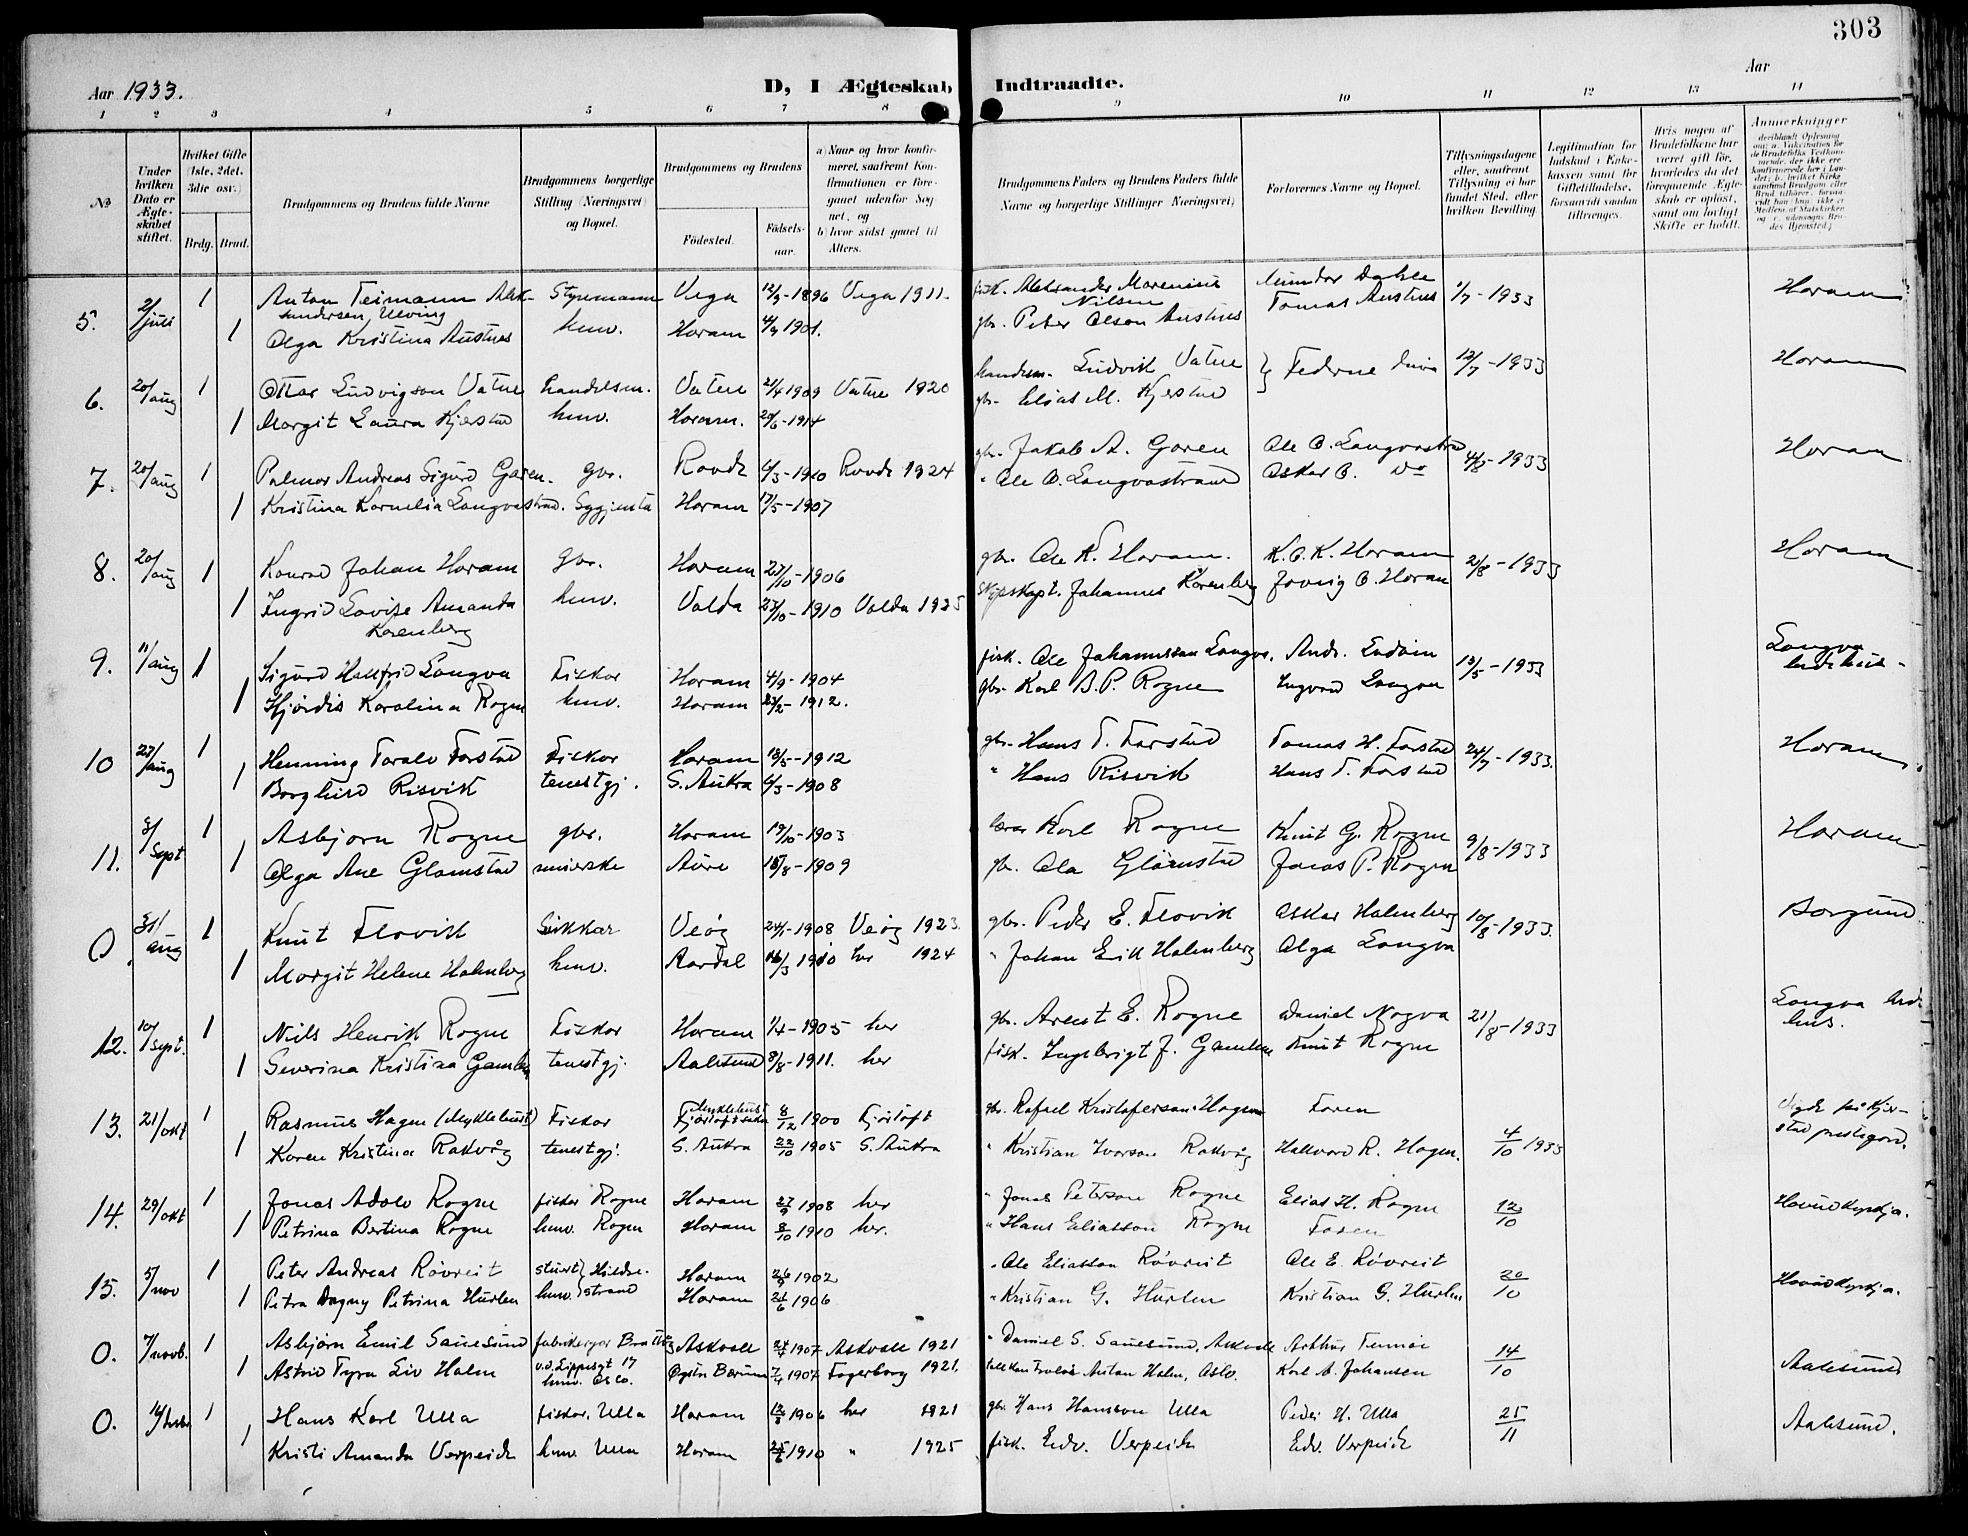 303
Aar 1933.
D, I Ægteskab Indtraadte.
Aar
1 2 3 4 5 6 7 8 9 10 11 12 13 14
№
Under hvilken Dato er Ægteskabet stiftet.
Hvilket Gifte (1ste, 2det, 3die osv.)
Brdg. Brud.
Brudgommens og Brudens fulde Navne
Brudgommens borgerlige Stilling (Næringsvei) og Bopæl.
Brudgommens og Brudens
Fødested.
Fødselsaar.
a) Naar og hvor konfirmeret, saafremt Konfirmationen er foregaaet udenfor Sognet, og
b) hvor sidst gaaet til Alters.
Brudgommens Faders og Brudens Faders fulde Navne og borgerlige Stillinger (Næringsvei)
Forlovernes Navne og Bopæl.
Tillysningsdagene eller, saafremt Tillysning ei har fundet Sted, efter hvilken Bevilling.
Legitimation for Indskud i Enkekassen samt for Giftetilladelse, forsaavidt saadan tiltrænges.
Hvis nogen af Brudefolkene har været gift før, hvorledes da det foregaaende Ægteskab er opløst, samt om lovligt Skifte er holdt.
Anmerkninger
5. 2/juli 1 Anton Teimann Aleksandersen Ulving Styrmann Vega 12/9-1896 Vega 1911. fisk. Aleksander Marenius Nilsen Tomas Austnes 1/7-1933 Haram
1 Olga Kristina Austnes husv. Haram 4/9 1901. gbr. Peter Olson Austnes
6. 20/aug 1 Ottar Ludvigson Vatne handelsm. Vatne 21/4 1909 Vatne 1920 handelsm. Ludvik Vatne } Fedrene 12/7-1933 Haram
1 Margit Laura Kjerstad husv. Haram. 20/6-1914 gbr. Elias M. Kjerstad
7. 20/aug 1 Palmar Andreas Sigurd Garen. gbr. Rovde 6/3-1910 Rovde 1924 gbr. Jakob A. Garen Ole O. Longvastrand 4/8-1933 Haram
1 Kristina Kornelia Longvastrand. Syggjenta Haram 17/5-1907 " Ole O. Longvastrand Oskar O. do
8. 20/aug 1 Konrad Johan Haram gbr. Haram 27/10-1906 gbr. Ole K. Haram. K.O.K. Haram 2/8-1933 Haram
1 Ingrid Lovise Amanda Korenberg husv. Volda 27/10-1910 Volda 1925 Skipskapt. Johannes Korenberg O. Haram
9. 11/aug 1 Sigurd Hallfrid Longva Fiskar Haram 4/9-1904 fisk. Ole Johannessen Longva. Andr. 13/5-1933 Longva bedehus-
1 Hjördis Karolina Rogne husv. Haram 23/2-1912. gbr. Karl B.P. Rogne Ingvard Longva
10 27/aug 1 Henning Toralv Farstad Fiskar Haram 18/5-1912 gbr. Hans T. Farstad Tomas H. Farstad 24/7-1933. Haram
1 Borghild Risvik tenestgj. S. Aukra 6/3-1908 " Hans Risvik Hans T. Farstad
11. 3/sept 1 Asbjørn Rogne gbr. Haram 19/10-1903 lærar Karl Rogne Knut G. Rogne 9/8-1933 Haram
1 Olga Ane Glamstad meierske Aure 15/8-1909 gbr. Ola Glåmstad Jonas P. Rogne
0. 31/aug 1 Knut Flovik Veöy 24/1-1908 Veöy 1923. gbr. Peder E. Flovik Oskar Holmberg 10/8-1933. Borgund
1 Margit Helene Holmberg husv. Aardal 16/3 1910 her 1924 " Johan Erik Holmberg Olga Longva
12. 10/sept. 1 Nils Henrik Rogne Fiskar Haram 1/4-1905 her gbr. Arent E. Rogne Daniel Nogva 21/8-1933 Longva bedehus.
1 Severina Kristina Gamlem tenestgj. Aalesund 8/8-1911. her fisk. Ingebrigt J. Gamlem Knut Rogne
13. 21/okt 1 Rasmus Hagen (Myklebust) Fiskar Myklebust Fjörtoft sokn 8/12 1900 Fjörtoft gbr. Rafael Kristoferson Hagen Faren 4/10 1933 Vigde på Kjerstad prestegard.
1 Karen Kristina Rakvåg tenestgj. S. Aukra 22/10 1905 S. Aukra " Kristian Ivarson Rakvåg Hallvard R. Hagen.
14. 29/okt 1 Jonas Adolv Rogne fiskar Rogne Haram 27/9 1908 her " Jonas Peterson Rogne Elias H. Rogne 12/10 Hovudkyrkja.
1 Petrina Bertina Rogne husv. Rogne Haram 8/10 1910 her. " Hans Eliasson Rogne Faren
15. 5/nov 1 Peter Andreas Rövreit stuert } Hildrestrand Haram 26/9 1902 " Ole Eliasson Rövreit Ole E. Rövreit 20/10 Hovudkyrkja.
1 Petra Dagny Petrina Hurlen husv. Haram 24/6 1906 " Kristian G. Hurlen Kristian G. Hurlen
0. 7/novb. 1 Asbjørn Emil Sauesund Askvoll 24/7 1907 Askvoll 1921 " Daniel S. Sauesund, Askvoll Arthur 14/10 Aalesund
1 Astrid Tyra Liv Holm husv. Oslo. Bærum 7/4 1907 Fagerborg 1921. Anton Holm, Oslo. Karl A. Johansen
0. 1 Hans Karl Ulla fiskar, Ulla Haram 1906 her 1921 gbr. Hans Hansson Ulla Peder H. Ulla 25/11 Aalesund.
1 Kristi Amanda Verpeide husv. Ulla Haram 25/6 1910 " 1925 fisk. Edv. Verpeide Edv. Verpeide